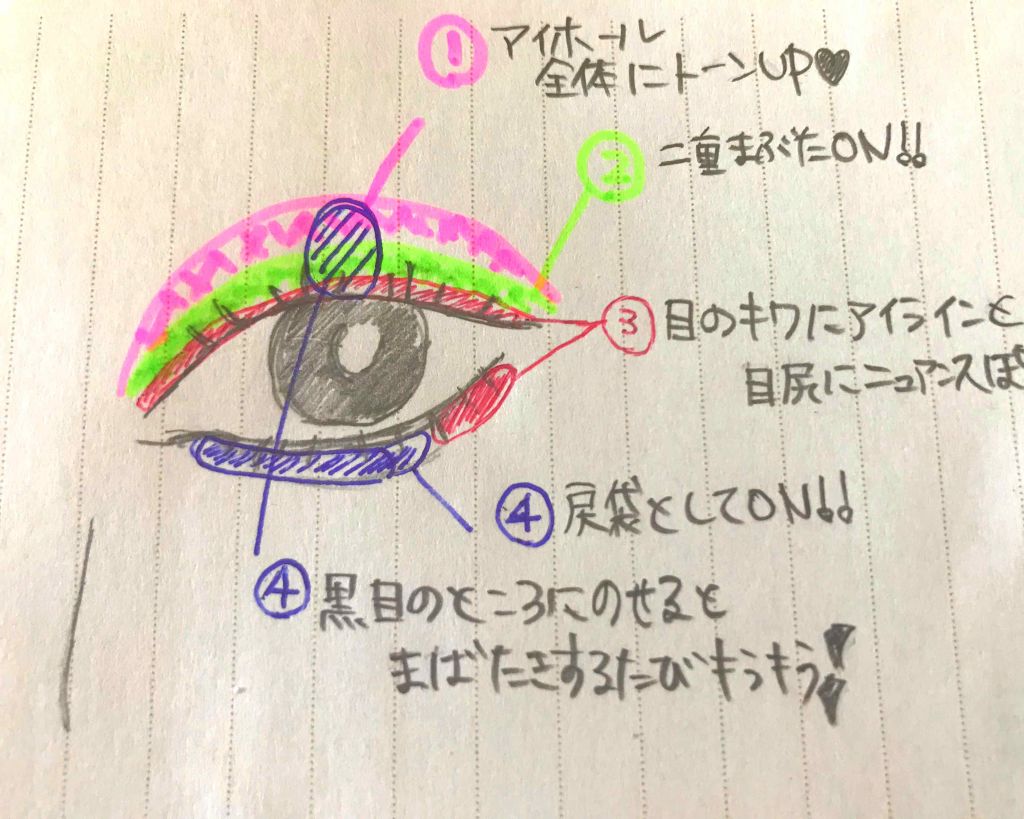 ① アイホール
全体にトーンUP♥
② 二重まぶたON!!
③ 目のキワにアイラインと
目尻にニュアンス
④ 戻袋としてON!!
④ 黒目のところにのせると
まばたきするたびキラキラ!